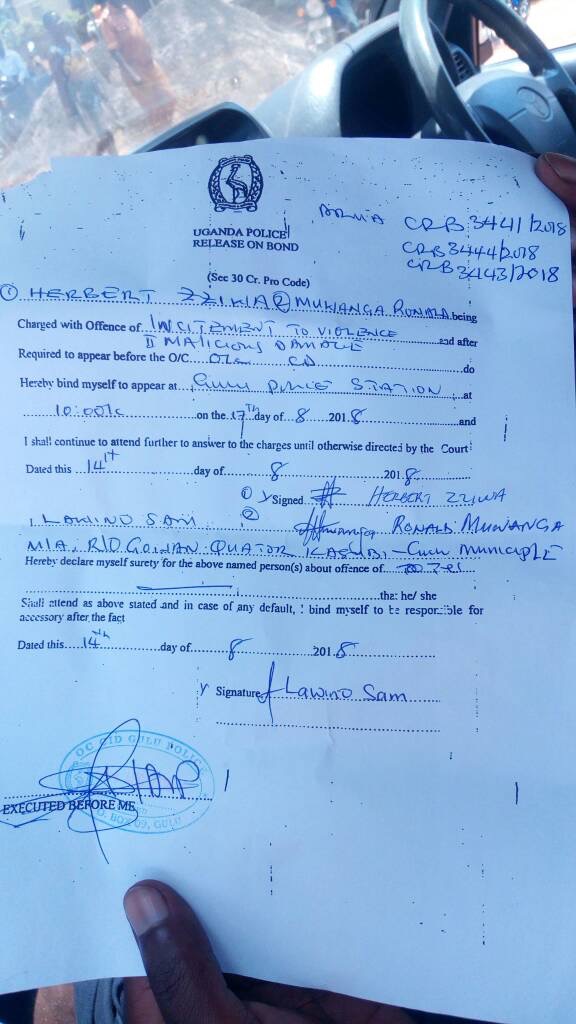 UGANDA POLICE
RELEASE ON BOND
CRB 3441/2018
CRB 3444/2018
CRB 3443/2018
(Sec 30 Cr. Pro Code)
① HERBERT ZZIWA ② MUWANGA RONALD being
Charged with Offence of I INCITEMENT TO VIOLENCE and after
II MALICIOUS DAMAGE
Required to appear before the O/C CID do
Hereby bind myself to appear at GULU POLICE STATION at
10:00 on the 17th day of 8 2018 and
I shall continue to attend further to answer to the charges until otherwise directed by the Court
Dated this 14th day of 8 2018
① Signed HERBERT ZZIWA
② RONALD MUWANGA
I LAWINO SAM
M/A, R/O QUATOR KASUBI - GULU MUNICIPLE
Hereby declare myself surety for the above named person(s) about offence of
that he/ she
Shall attend as above stated and in case of any default, I bind myself to be responsible for
accessory after the fact
Dated this 14th day of 8 2018
Signature Lawino Sam
OC CID GULU POLICE
EXECUTED BEFORE ME
GULU